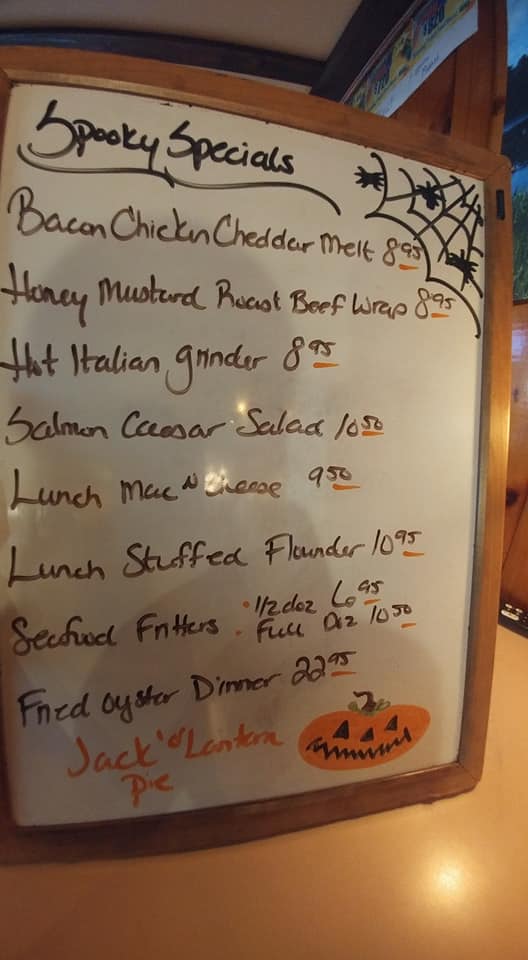 Spooky Specials
Bacon Chicken Cheddar Melt 8 95
Honey Mustard Roast Beef Wrap 8 95
Hot Italian grinder 8 95
Salmon Caesar Salad 10 50
Lunch Mac N Cheese 9 50
Lunch Stuffed Flounder 10 95
Seafood Fritters • 1/2 doz 6 95
• Full Doz 10 50
Fried oyster Dinner 22 95
Jack 'o' Lantern
Pie